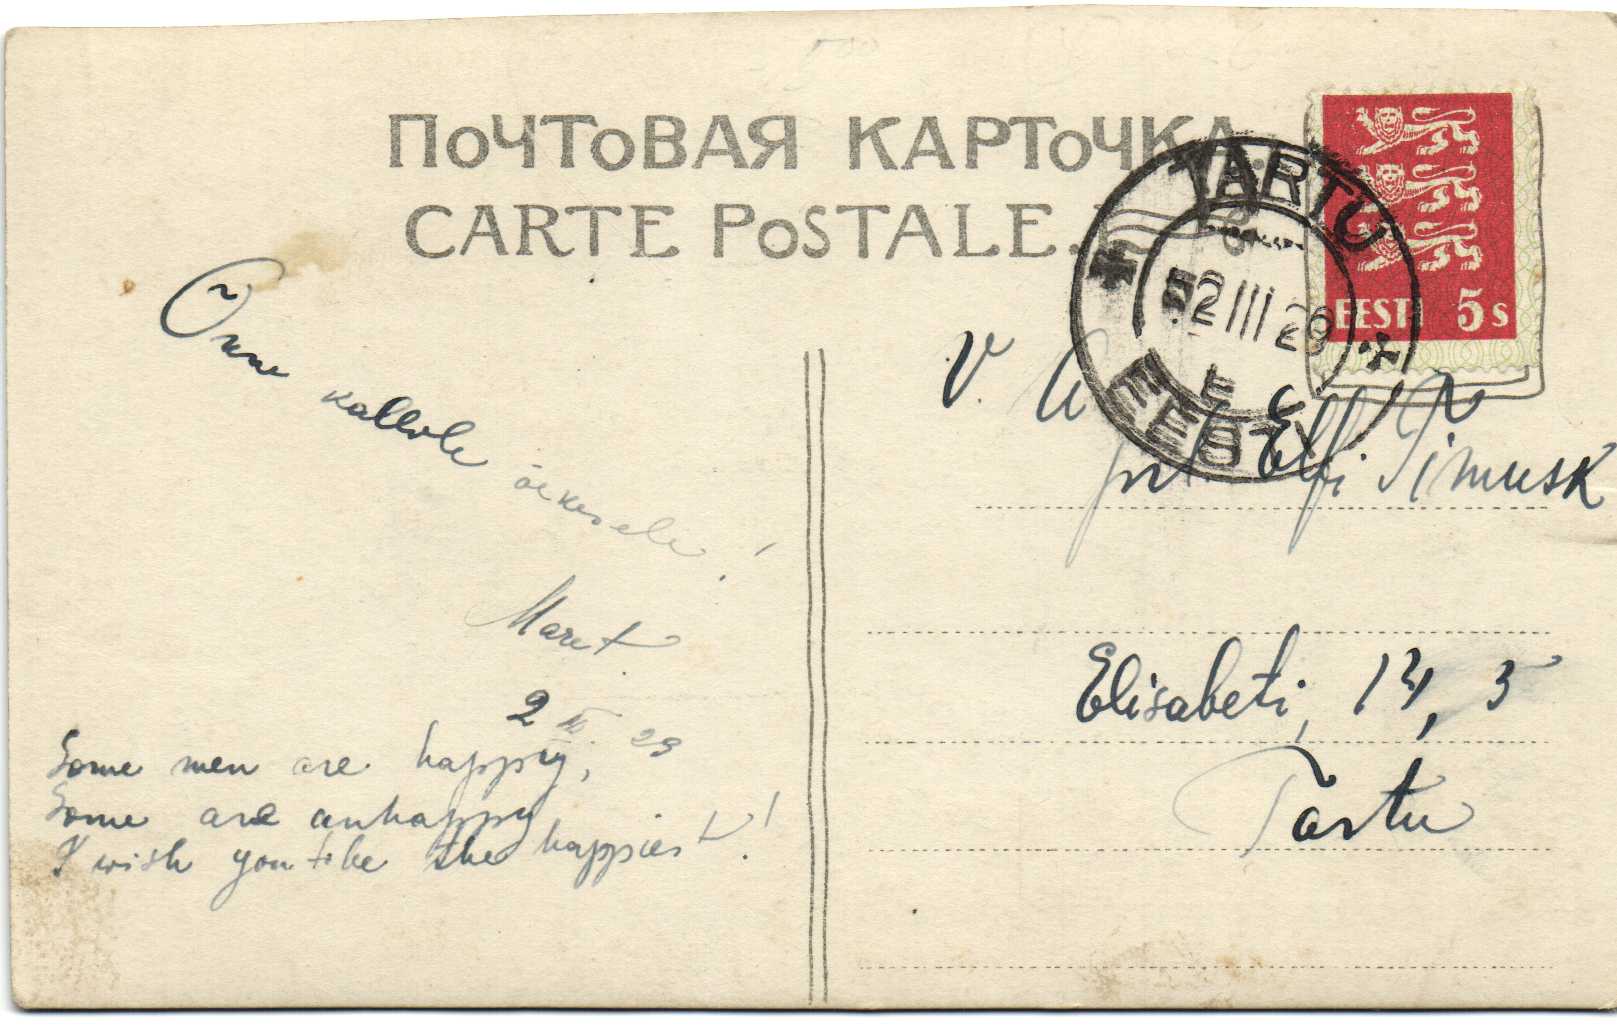 ПОЧТОВАЯ КАРТОЧКА.
CARTE POSTALE.
TARTU
2 III 29
EESTI
EESTI 5 s
Õnne kallale õekesele!
Maret
2 III 29
Some men are happy,
Some are unhappy
I wish you to be the happiest!
V. A.
prl. Elfi Timusk
Elisabeti, 14, 3
Tartu